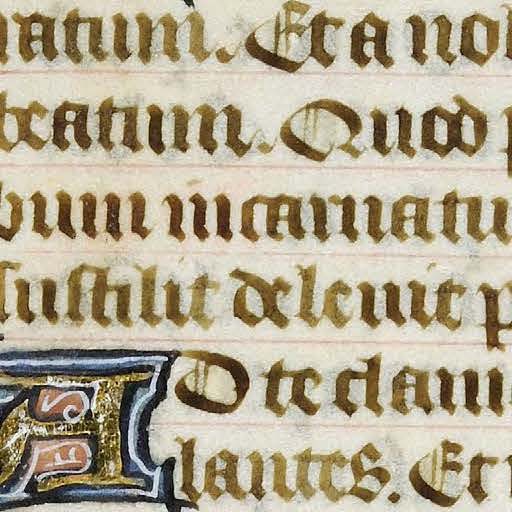 natum. Et a nob
tratum. Quod p
bum incarnatu
sustulit deleuit p
AD te clami
lantes. Et